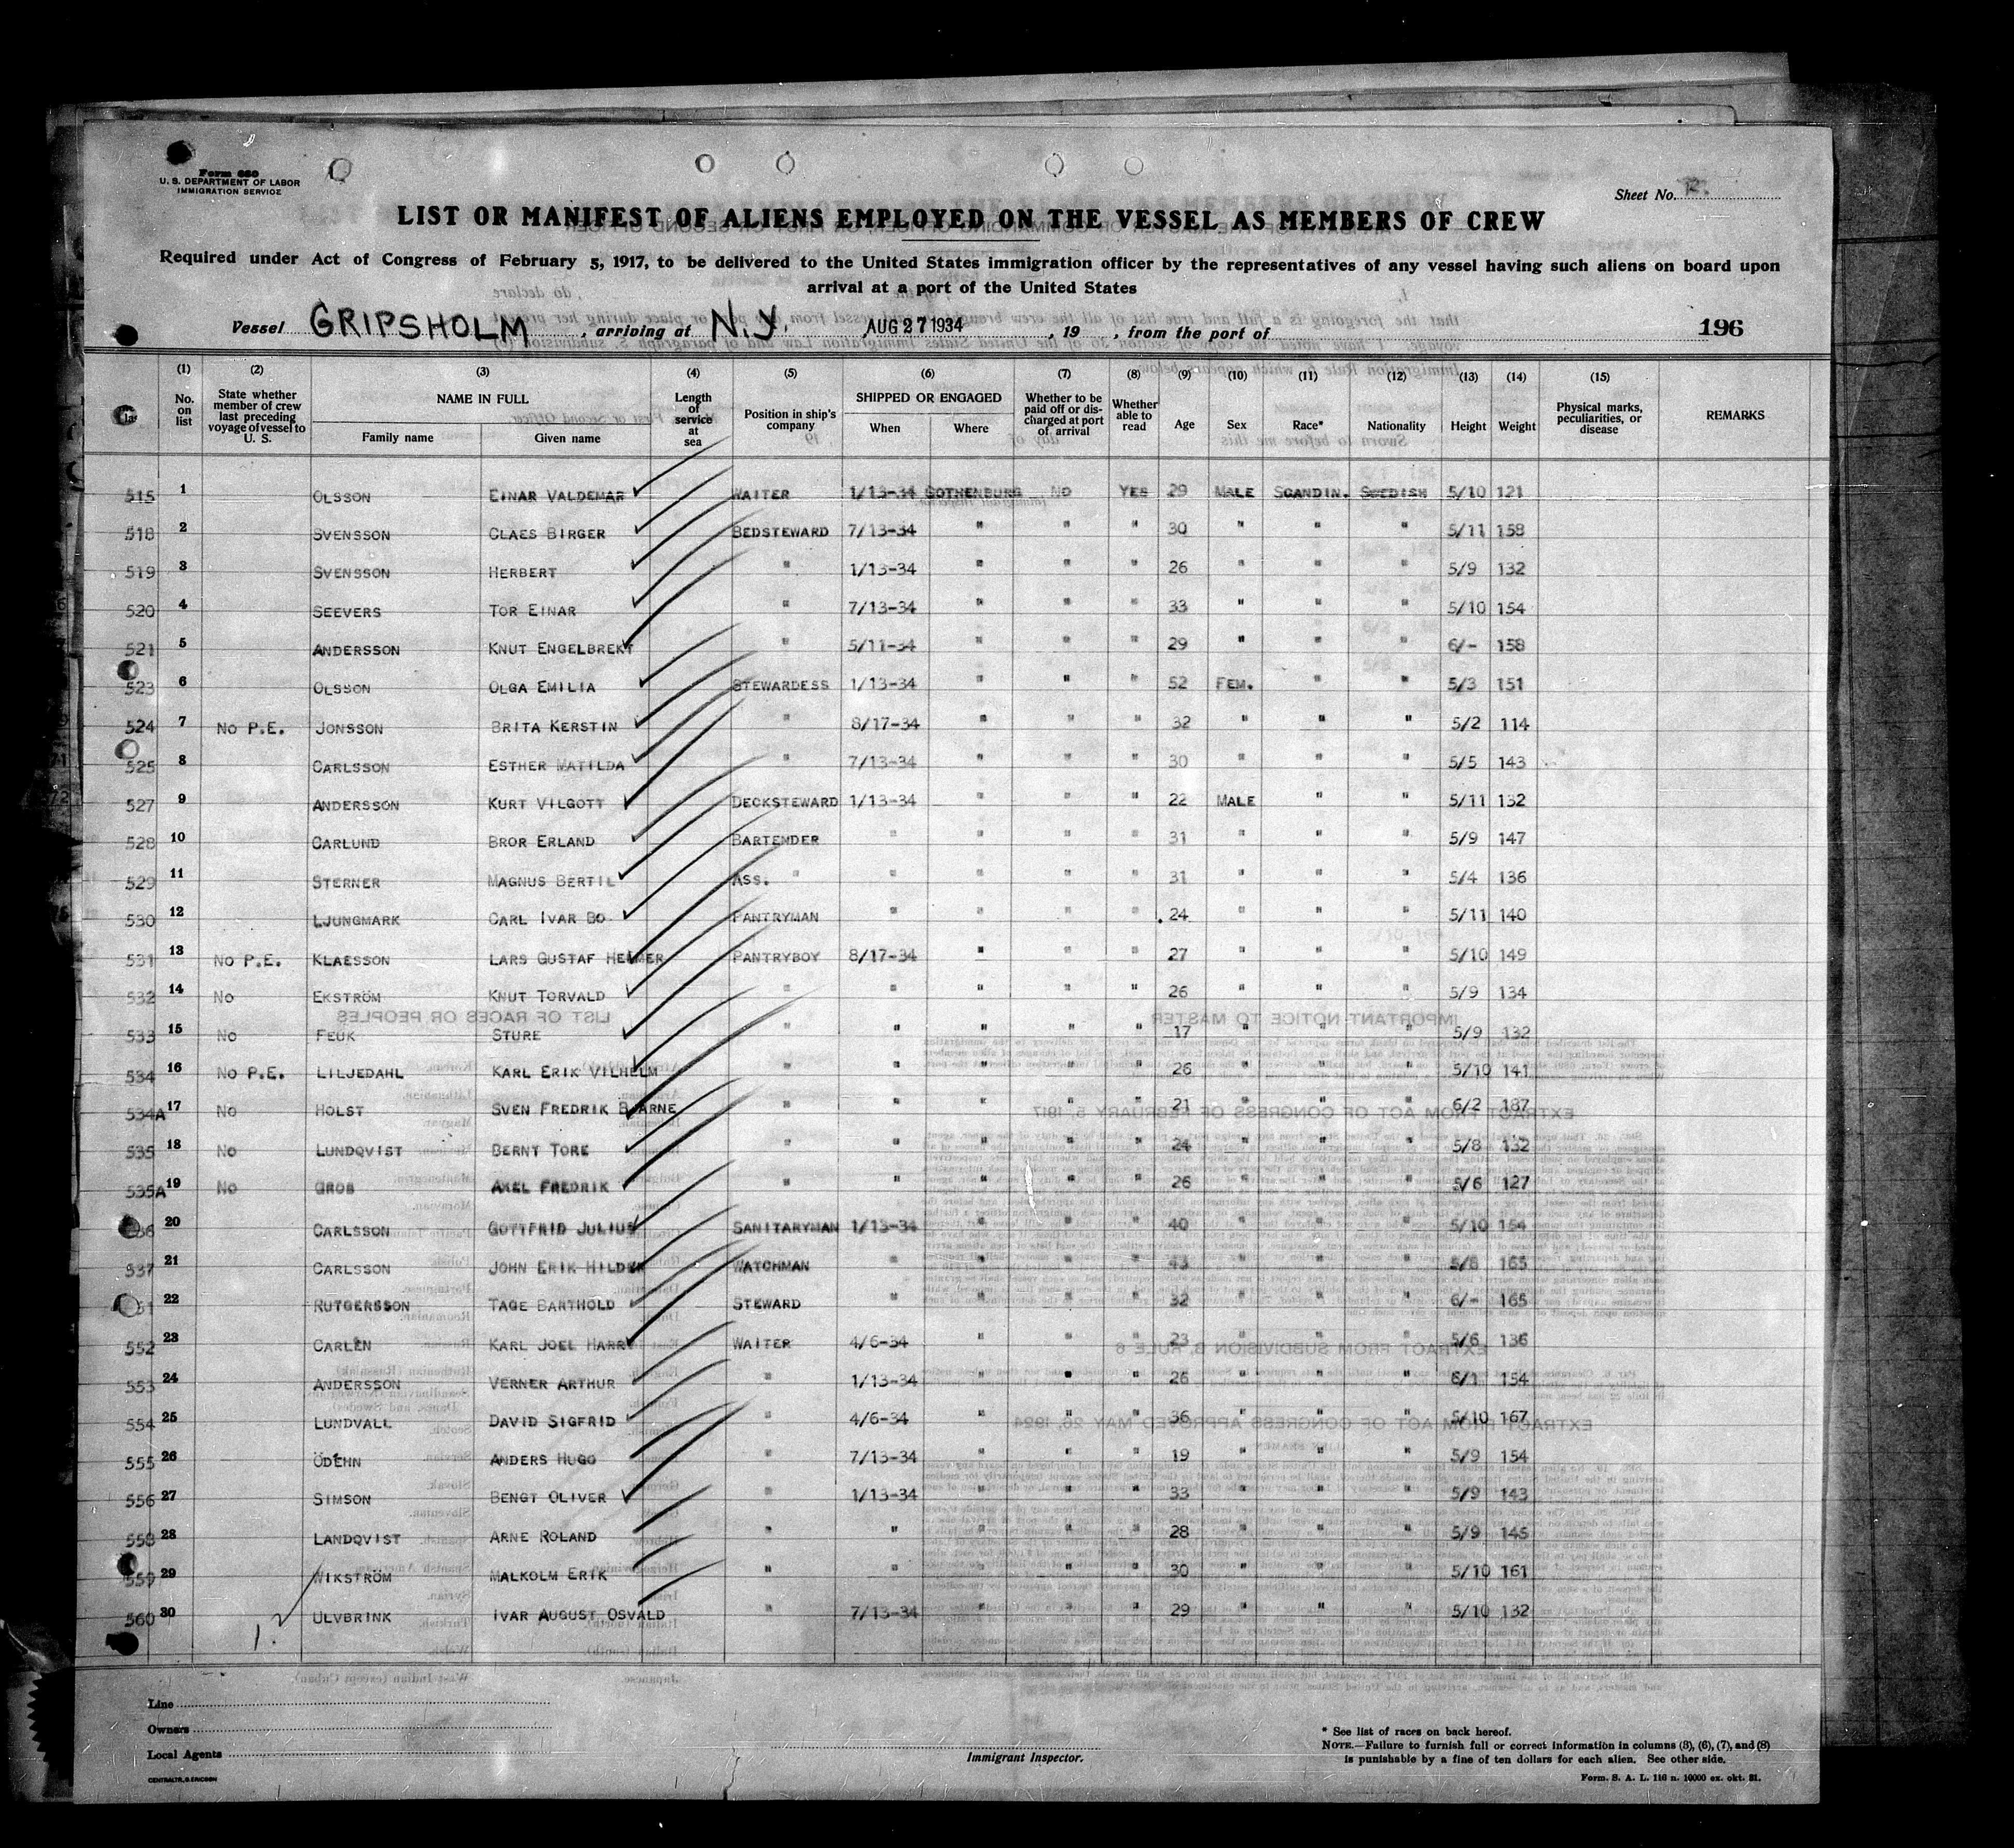 Form 680
U. S. DEPARTMENT OF LABOR
IMMIGRATION SERVICE
Sheet No. R.
LIST OR MANIFEST OF ALIENS EMPLOYED ON THE VESSEL AS MEMBERS OF CREW
Required under Act of Congress of February 5, 1917, to be delivered to the United States immigration officer by the representatives of any vessel having such aliens on board upon
arrival at a port of the United States
Vessel GRIPSHOLM, arriving at N.Y. AUG 27 1934, 19 , from the port of 196
(1) (2) (3) (4) (5) (6) (7) (8) (9) (10) (11) (12) (13) (14) (15)
No. on list State whether member of crew last preceding voyage of vessel to U. S. NAME IN FULL Family name Given name Length of service at sea Position in ship's company SHIPPED OR ENGAGED When Where Whether to be paid off or discharged at port of arrival Whether able to read Age Sex Race* Nationality Height Weight Physical marks, peculiarities, or disease REMARKS
515 1 OLSSON EINAR VALDEMAR WAITER 1/13-34 GOTHENBURG NO YES 29 MALE SCANDIN. SWEDISH 5/10 121
518 2 SVENSSON CLAES BIRGER BEDSTEWARD 7/13-34 " " " 30 " " " 5/11 158
519 3 SVENSSON HERBERT " 1/13-34 " " " 26 " " " 5/9 132
520 4 SEEVERS TOR EINAR " 7/13-34 " " " 33 " " " 5/10 154
521 5 ANDERSSON KNUT ENGELBREKT " 5/11-34 " " " 29 " " " 6/- 158
523 6 OLSSON OLGA EMILIA STEWARDESS 1/13-34 " " " 52 FEM. " " 5/3 151
524 7 NO P.E. JONSSON BRITA KERSTIN " 8/17-34 " " " 32 " " " 5/2 114
525 8 CARLSSON ESTHER MATILDA " 7/13-34 " " " 30 " " " 5/5 143
527 9 ANDERSSON KURT VILGOTT DECKSTEWARD 1/13-34 " " " 22 MALE " " 5/11 132
528 10 CARLUND BROR ERLAND BARTENDER " " " " 31 " " " 5/9 147
529 11 STERNER MAGNUS BERTIL ASS. " " " " " 31 " " " 5/4 136
530 12 LJUNGMARK CARL IVAR BO PANTRYMAN " " " " 24 " " " 5/11 140
531 13 NO P.E. KLAESSON LARS GUSTAF HELMER PANTRYBOY 8/17-34 " " " 27 " " " 5/10 149
532 14 NO EKSTRÖM KNUT TORVALD " " " " " 26 " " " 5/9 134
533 15 NO FEUK STURE " " " " " 17 " " " 5/9 132
534 16 NO P.E. LILJEDAHL KARL ERIK VILHELM " " " " " 26 " " " 5/10 141
534A 17 NO HOLST SVEN FREDRIK BJARNE " " " " " 21 " " " 6/2 187
535 18 NO LUNDQVIST BERNT TORE " " " " " 24 " " " 5/8 132
535A 19 NO GROB AXEL FREDRIK " " " " " 26 " " " 5/6 127
536 20 CARLSSON GOTTFRID JULIUS SANITARYMAN 1/13-34 " " " 40 " " " 5/10 154
537 21 CARLSSON JOHN ERIK HILDER WATCHMAN " " " " 43 " " " 5/8 165
22 RUTGERSSON TAGE BARTHOLD STEWARD " " " " 32 " " " 6/- 165
552 23 CARLÉN KARL JOEL HARRY WAITER 4/6-34 " " " 23 " " " 5/6 136
553 24 ANDERSSON VERNER ARTHUR " 1/13-34 " " " 26 " " " 6/1 154
554 25 LUNDVALL DAVID SIGFRID " 4/6-34 " " " 36 " " " 5/10 167
555 26 ÖDÉHN ANDERS HUGO " 7/13-34 " " " 19 " " " 5/9 154
556 27 SIMSON BENGT OLIVER " 1/13-34 " " " 33 " " " 5/9 143
558 28 LANDQVIST ARNE ROLAND " " " " " 28 " " " 5/9 145
559 29 WIKSTRÖM MALKOLM ERIK " " " " " 30 " " " 5/10 161
560 30 ULVBRINK IVAR AUGUST OSVALD " 7/13-34 " " " 29 " " " 5/10 132
Line
Owners
Local Agents
Immigrant Inspector.
* See list of races on back hereof.
NOTE.—Failure to furnish full or correct information in columns (3), (6), (7), and (8)
is punishable by a fine of ten dollars for each alien. See other side.
CENTRALTR. G. ERICSON
Form. S. A. L. 116 n. 10000 ex. okt. 31.